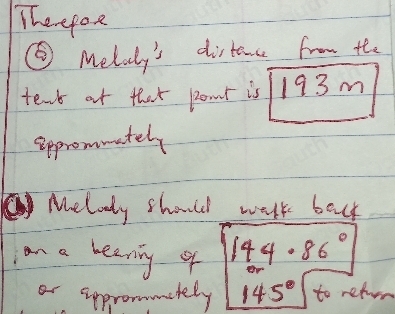 Therefore
(a) Melody's distance from the
tent at that point is 193 m
approximately
(b) Melody should walk back
on a bearing of 144.86°
or
or approximately 145° to return